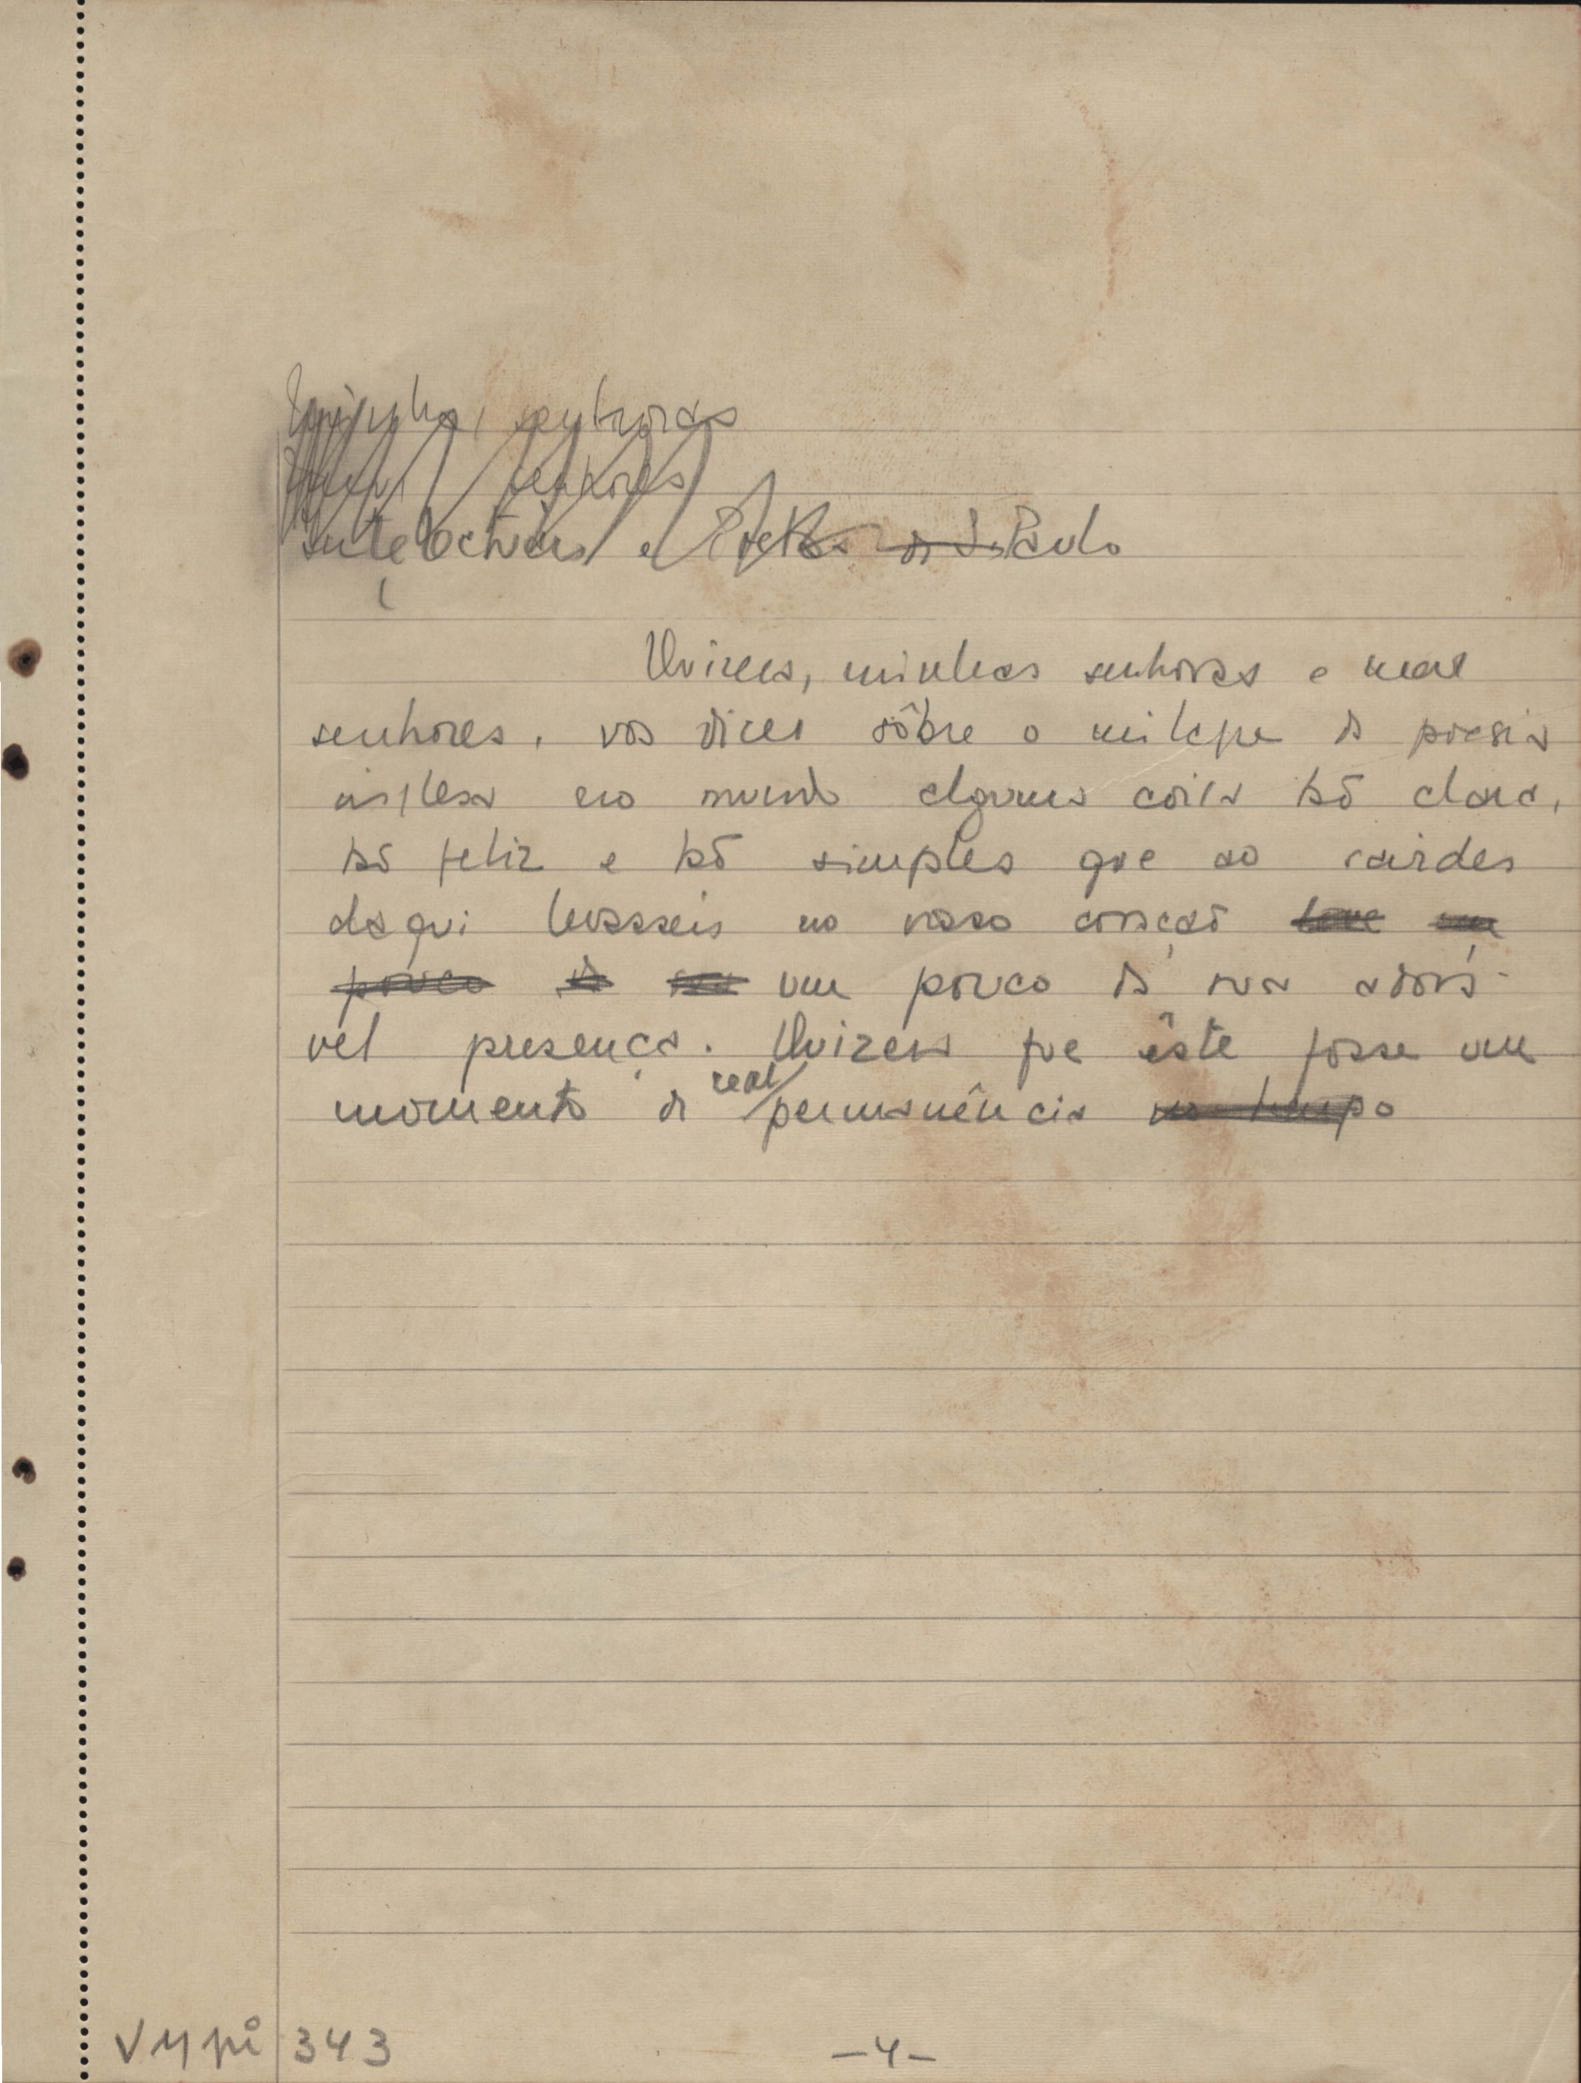 Minhas senhoras
Meus senhores
Intelectuais e Poetas de S. Paulo
Quizera, minhas senhoras e meus
senhores, vos dizer sôbre o milagre da poesia
inglesa no mundo alguma coisa tão clara,
tão feliz e tão simples que ao sairdes
daqui levasseis no vosso coração leve um
pouco da sua um pouco da sua adorá-
vel presença. Quizera que êste fosse um
momento de real permanência no tempo
Vmpi 343
-4-